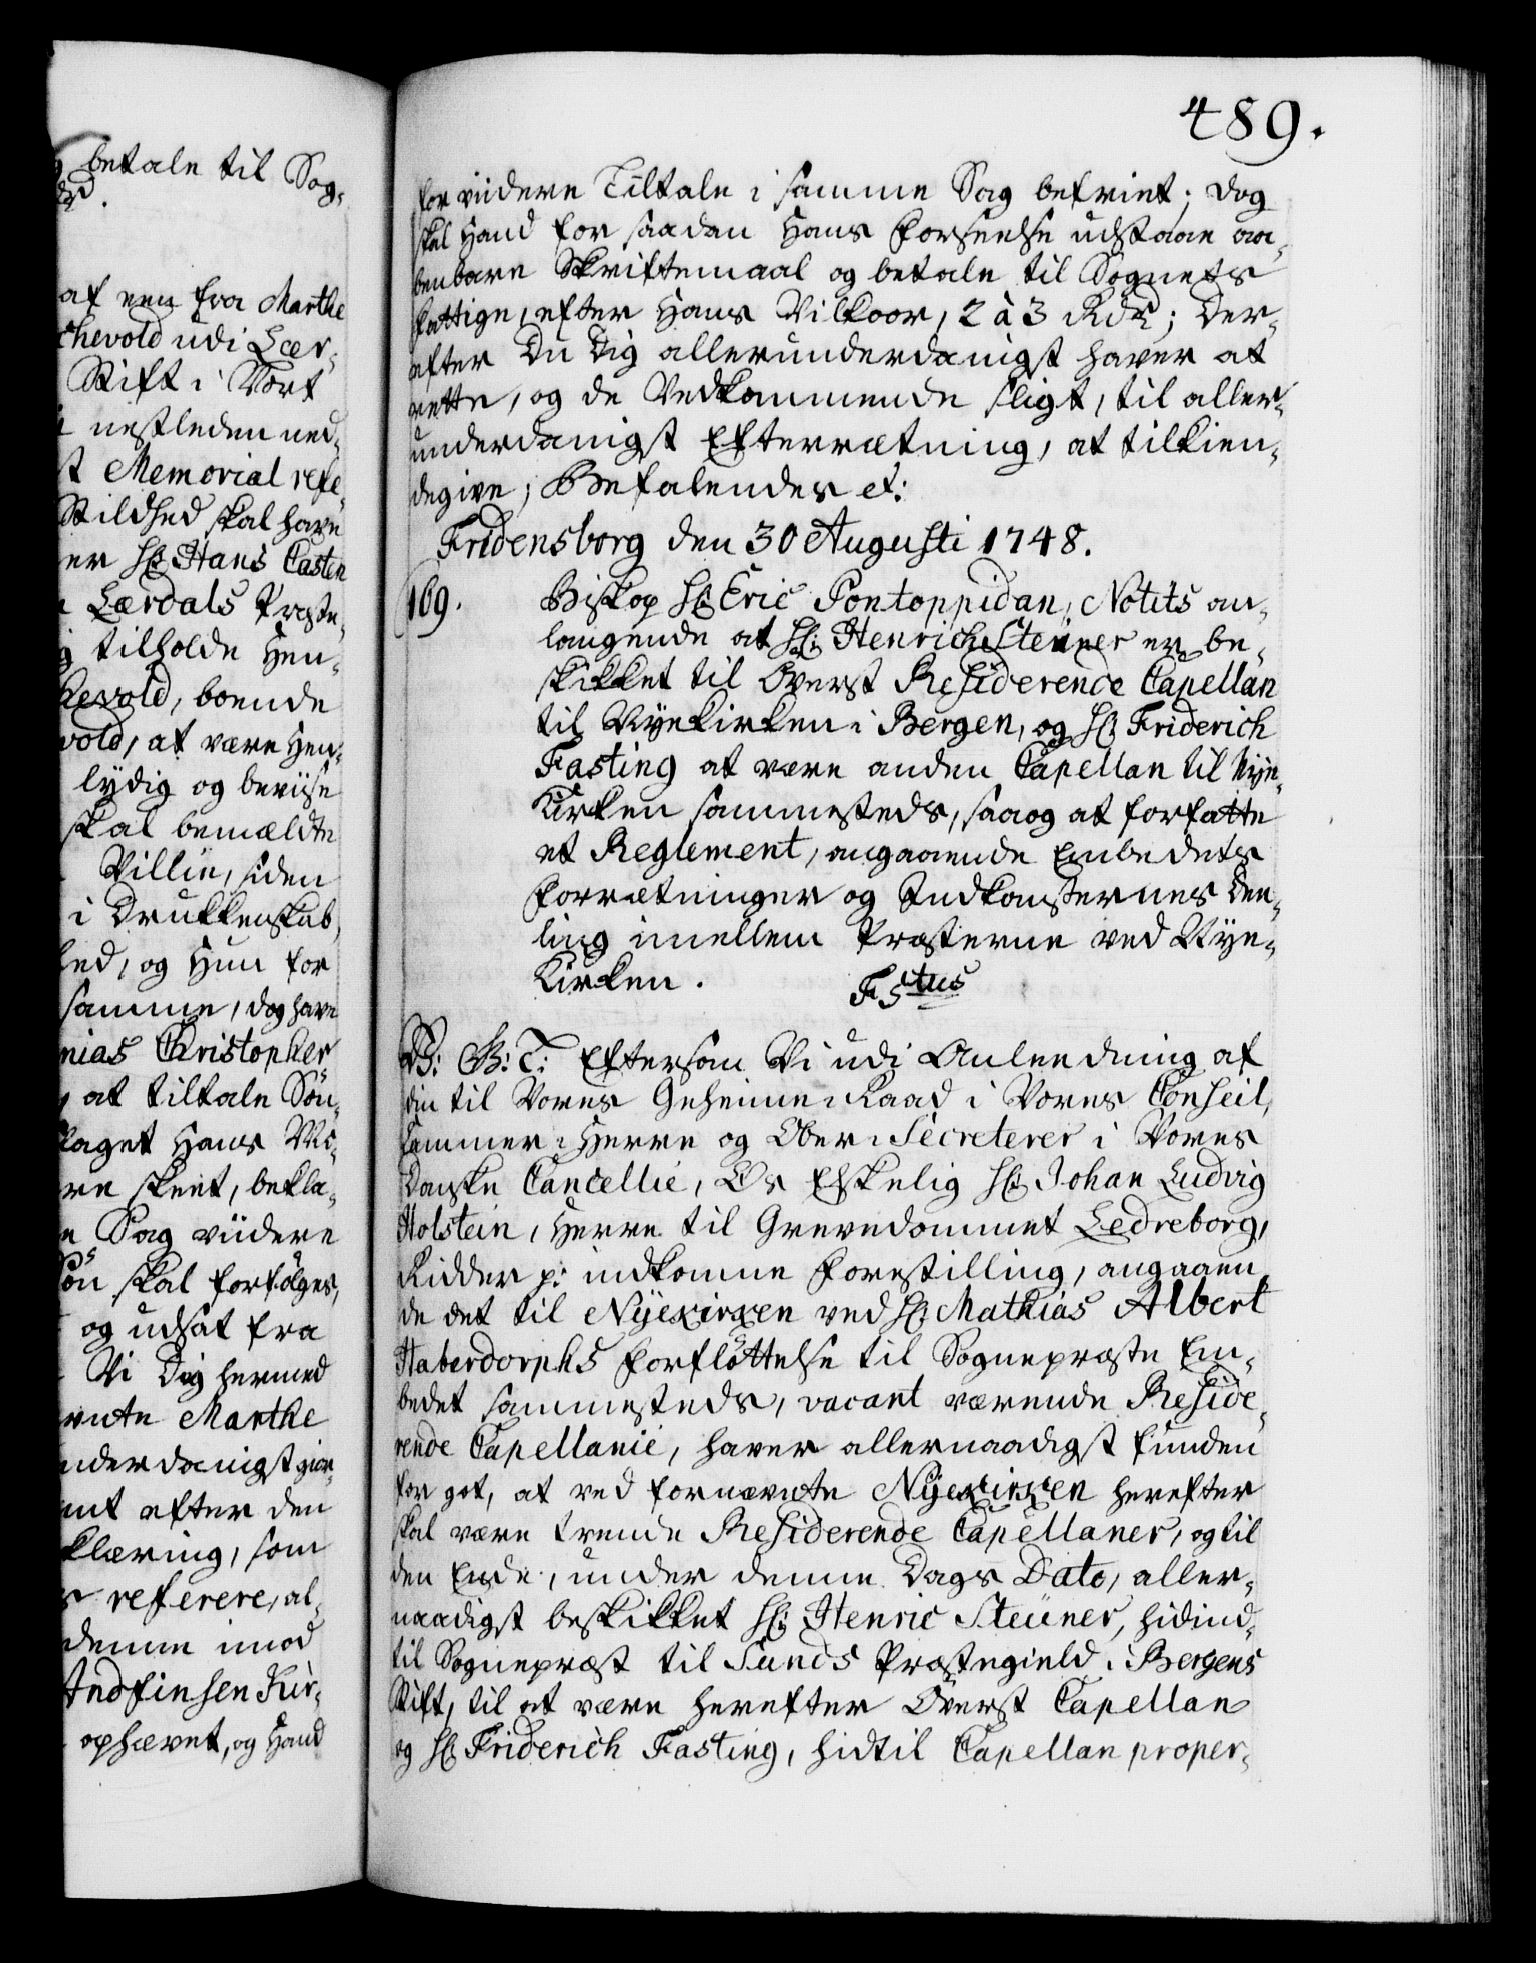 betale til Sog-
af een fra Marthe
chevold udi Lær-
Stift i Vort
nestleden ned-
st Memorial refe-
Stilhed skal have
er Hr: Hans Casten
Lærdals Præste-
tilholde Hen-
kevold, boende
vold, at være Hen-
lydig og beviise
skal bemældte
Villie, siden
i Drukkenskab,
hed, og Hun for
samme, dog have
nias Christopher
at tiltale Sön-
klaget Hans Mo-
re skeet, bekla-
e Sag viidere
Sön skal forfølges,
og udsat fra
Vi Dig hermed
vnte Marthe
underdanigst giør-
mt efter den
klæring, som
s referere, al-
denne imod
Andfinsen Kir-
ophævet, og Hand
489.
for viidere Tiltale i samme Sag befriet; dog
skal Hand for saadan Hans Forseelse udstaae aa-
benbare Skriftemaal og betale til Sognets
Fattige, efter Hans Vilkoor, 2 à 3 Rdr; Der-
efter Du Dig allerunderdanigst haver at
rette, og de Vedkommende sligt, til aller-
underdanigst Efterrætning, at tilkien-
degive; Befalendes et:
Fridensborg den 30 Augusti 1748.
169.
Biskop Hr: Eric Pontoppidan, Notits an-
langende at Hr: Henrich Steüner er be-
skikket til Øverst Residerende Capellan
til Nyekirken i Bergen, og Hr: Friderich
Fasting at være anden Capellan til Nye-
Kirken sammesteds, saa og at forfatte
et Reglement, angaaende Embedets
Forrætninger og Indkomsternes Dee-
ling imellem Præsterne ved Nye-
Kirken.
F 5tus
V: G: T: Eftersom Vi udi Anleedning af
din til Vores Geheime-Raad i Vores Conseil,
Cammer-Herre og Ober-Secreterer i Vores
Danske Cancellie, Os Elskelig Hr: Johan Ludvig
Holstein, Herre til Grevedommet Ledreborg,
Ridder p: indkomne Forestilling, angaaen
de det til Nyekirken ved Hr: Mathias Albert
Haberdorphs Forfløttelse til Sognepræste Em-
bedet sammesteds, vacant værende Reside-
rende Capellanie, haver allernaadigst funden
for got, at ved fornævnte Nyekirken herefter
skal være trende Residerende Capellaner, og til
den Ende, under denne Dags Dato, aller-
naadigst beskikket Hr: Henric Steüner, hidind-
til Sognepræst til Sunds Præstegield i Bergens
Stift, til at være herefter Øverst Capellan
og Hr: Friderich Fasting, hidtil Capellan proper-